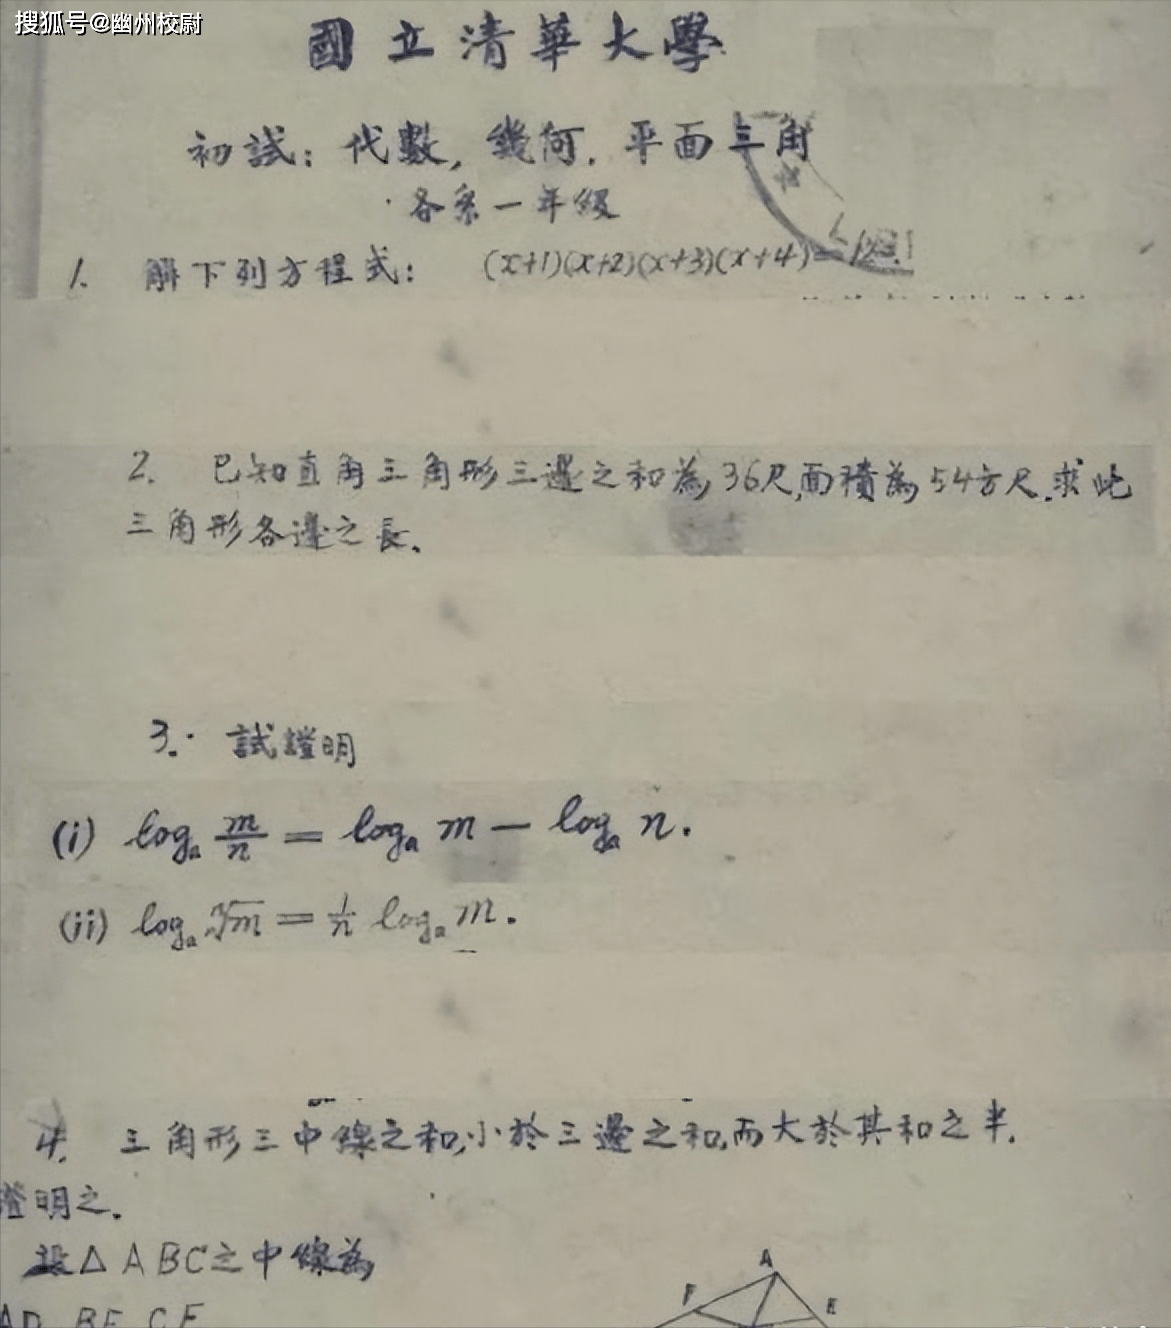 搜狐号@幽州校尉
國立清華大學
初試：代數，幾何，平面三角
各系一年級
1. 解下列方程式：(x+1)(x+2)(x+3)(x+4)=
2. 已知直角三角形三邊之和為36尺,面積為54方尺.求此
三角形各邊之長.
3. 試證明
(i) logₐ m/n = logₐ m − logₐ n.
(ii) logₐ ⁿ√m = 1/n logₐ m.
4. 三角形三中線之和,小於三邊之和,而大於其和之半.
證明之.
設△ABC之中線為
AD BE CF
A
F
E